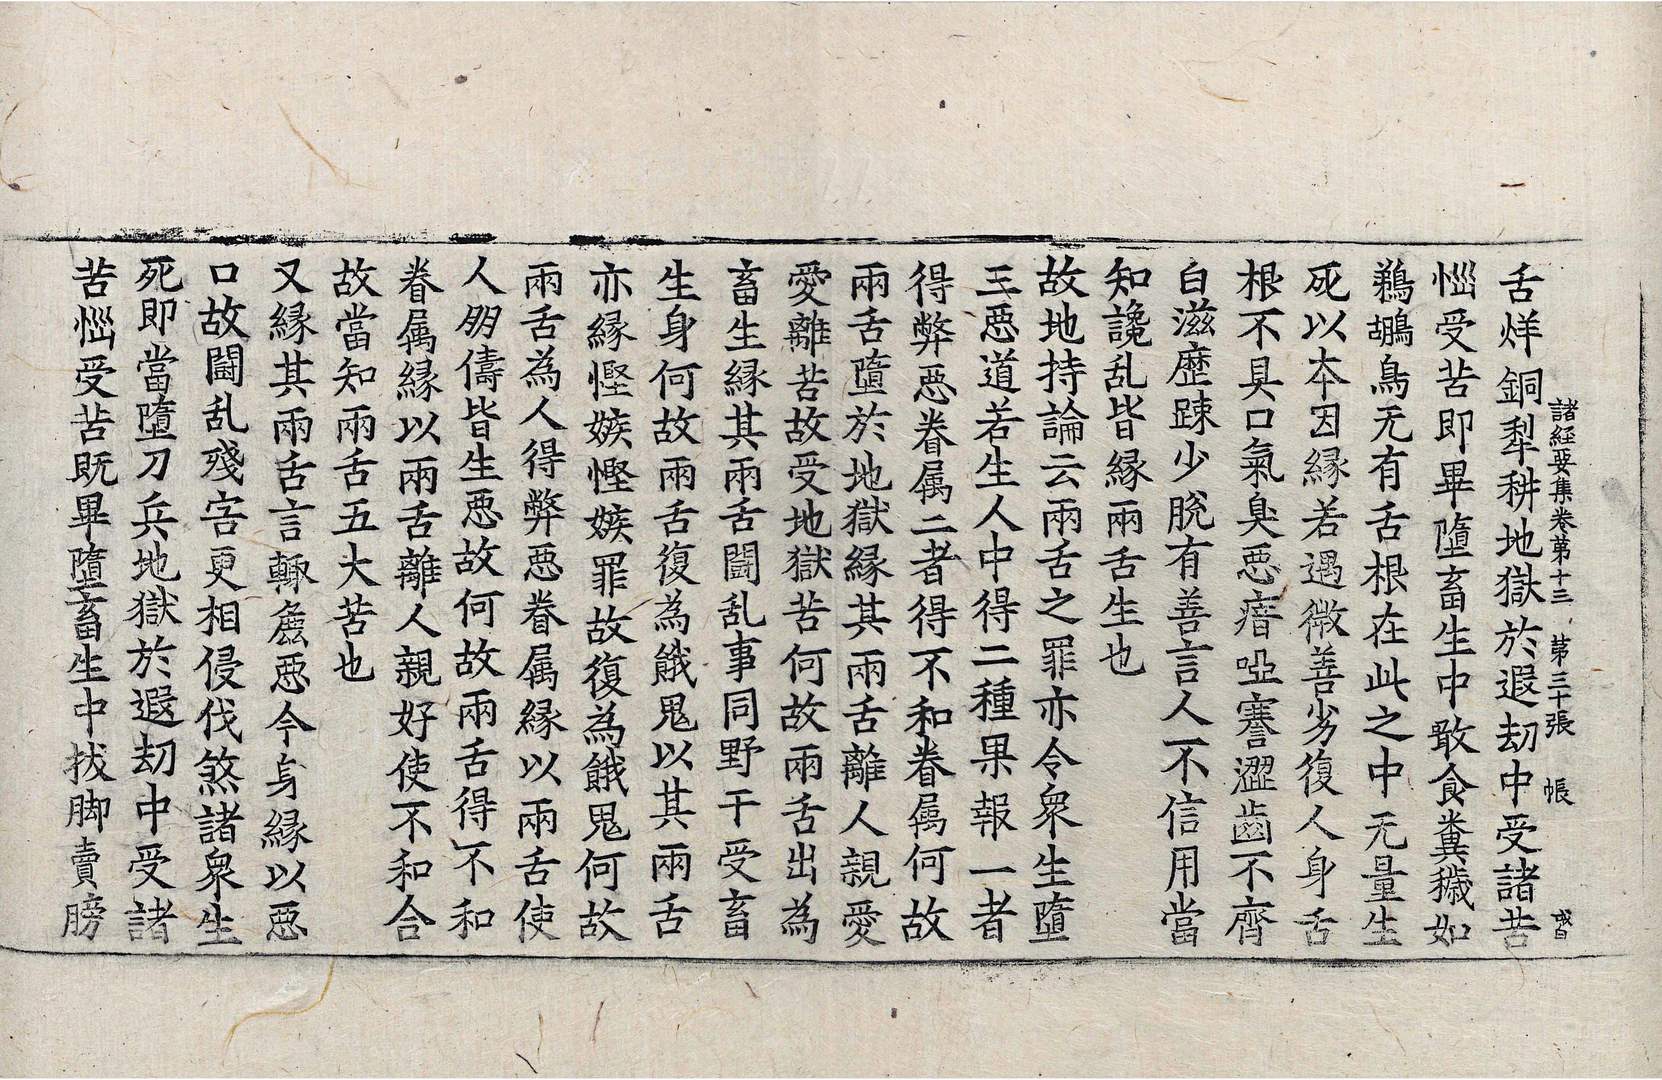 諸經要集卷第十三 第三十張 帳
舌烊銅犁耕地獄於遐劫中受諸苦
惱受苦即畢墮畜生中敢食糞穢如
鵜鶘鳥无有舌根在此之中无量生
死以本因緣若遇微善劣復人身舌
根不具口氣臭惡瘖啞謇澀齒不齊
白滋歷踈少脫有善言人不信用當
知讒乱皆緣兩舌生也
故地持論云兩舌之罪亦令衆生墮
三惡道若生人中得二種果報一者
得弊惡眷属二者得不和眷属何故
兩舌墮於地獄緣其兩舌離人親愛
愛離苦故受地獄苦何故兩舌出為
畜生緣其兩舌鬪乱事同野干受畜
生身何故兩舌復為餓鬼以其兩舌
亦緣慳嫉慳嫉罪故復為餓鬼何故
兩舌為人得弊惡眷属緣以兩舌使
人朋儔皆生惡故何故兩舌得不和
眷属緣以兩舌離人親好使不和合
故當知兩舌五大苦也
又緣其兩舌言輙麁惡今身緣以惡
口故鬪乱殘害更相侵伐煞諸衆生
死即當墮刀兵地獄於遐劫中受諸
苦惱受苦既畢墮畜生中拔脚賣膀